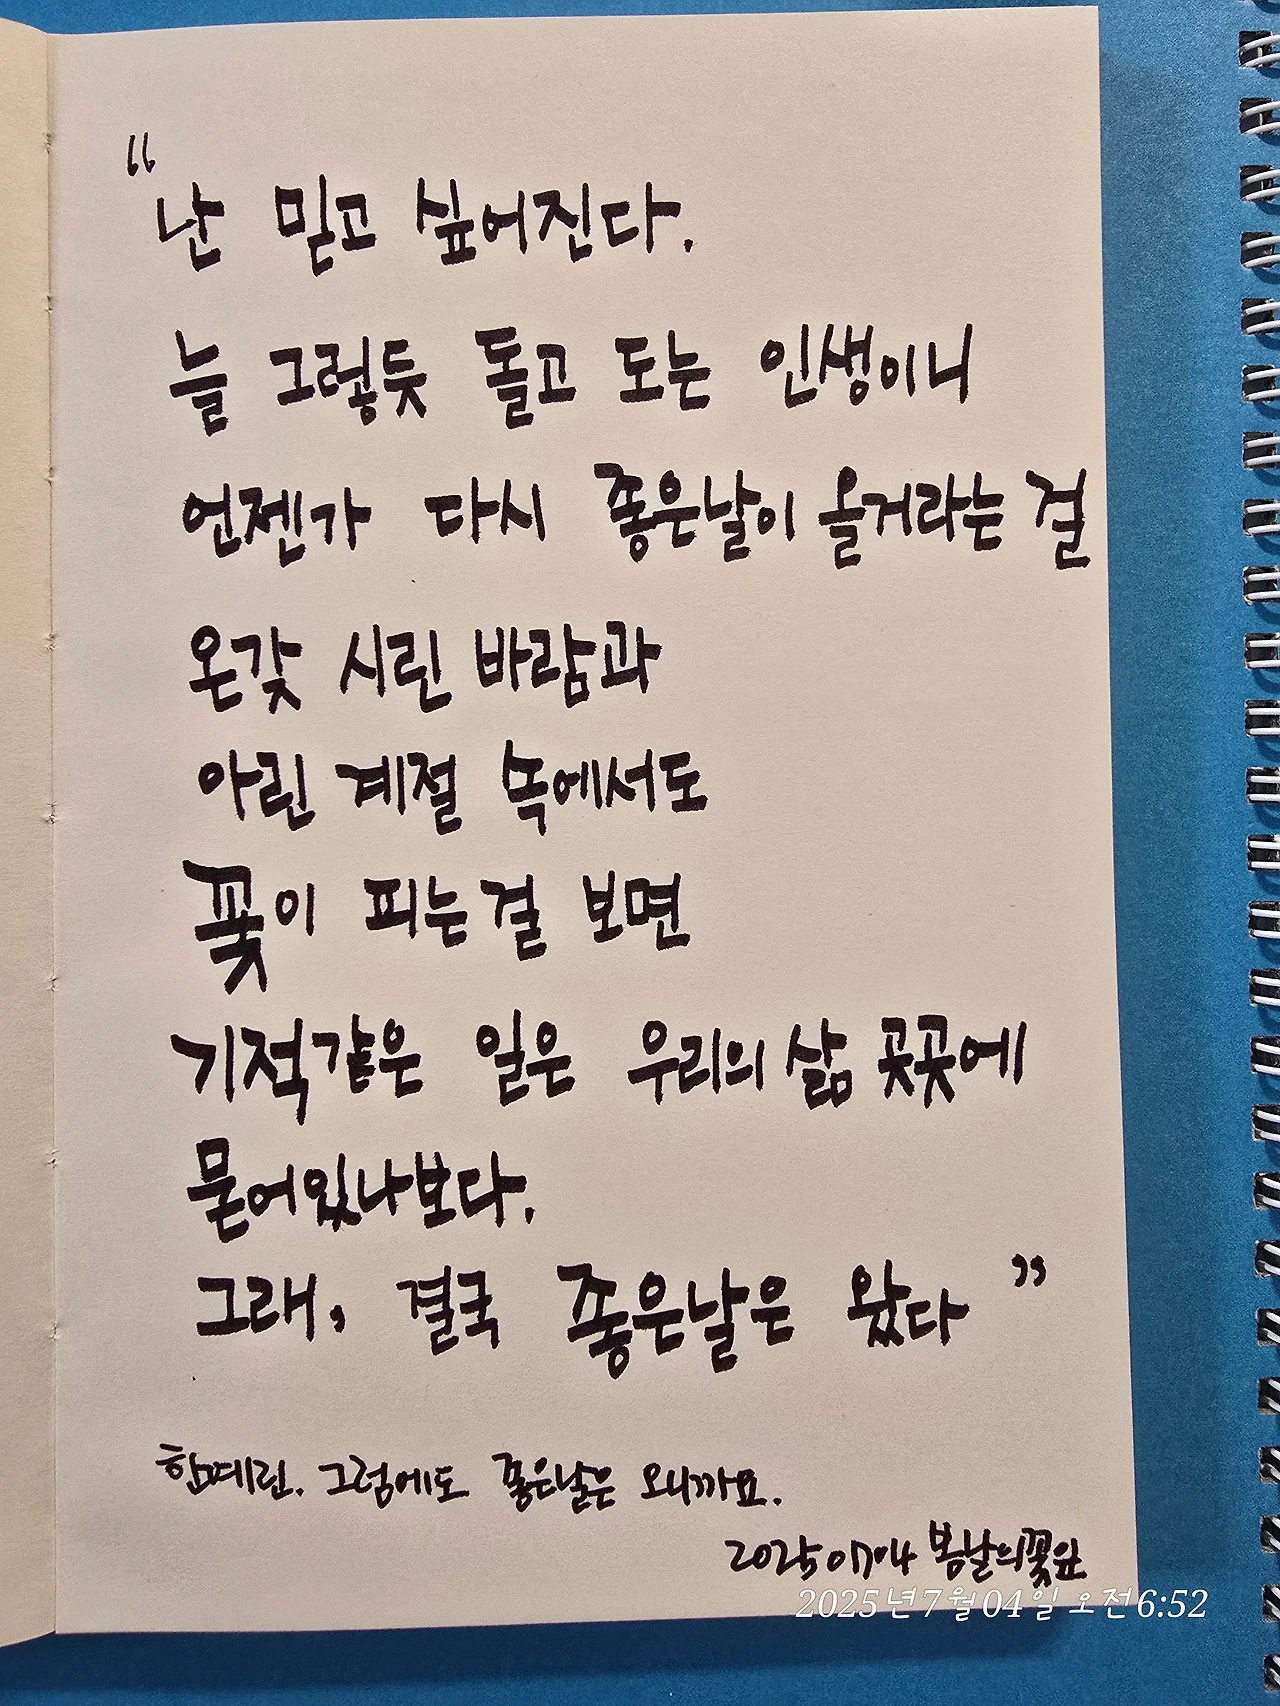 “난 믿고 싶어진다.
늘 그렇듯 돌고 도는 인생이니
언젠가 다시 좋은날이 올거라는 걸
온갖 시린 바람과
아린 계절 속에서도
꽃이 피는걸 보면
기적같은 일은 우리의 삶 곳곳에
묻어있나보다.
그래, 결국 좋은날은 왔다”
함예린. 그럼에도 좋은날은 오니까요.
20250704 봄날의꽃잎
2025년7월04일 오전6:52